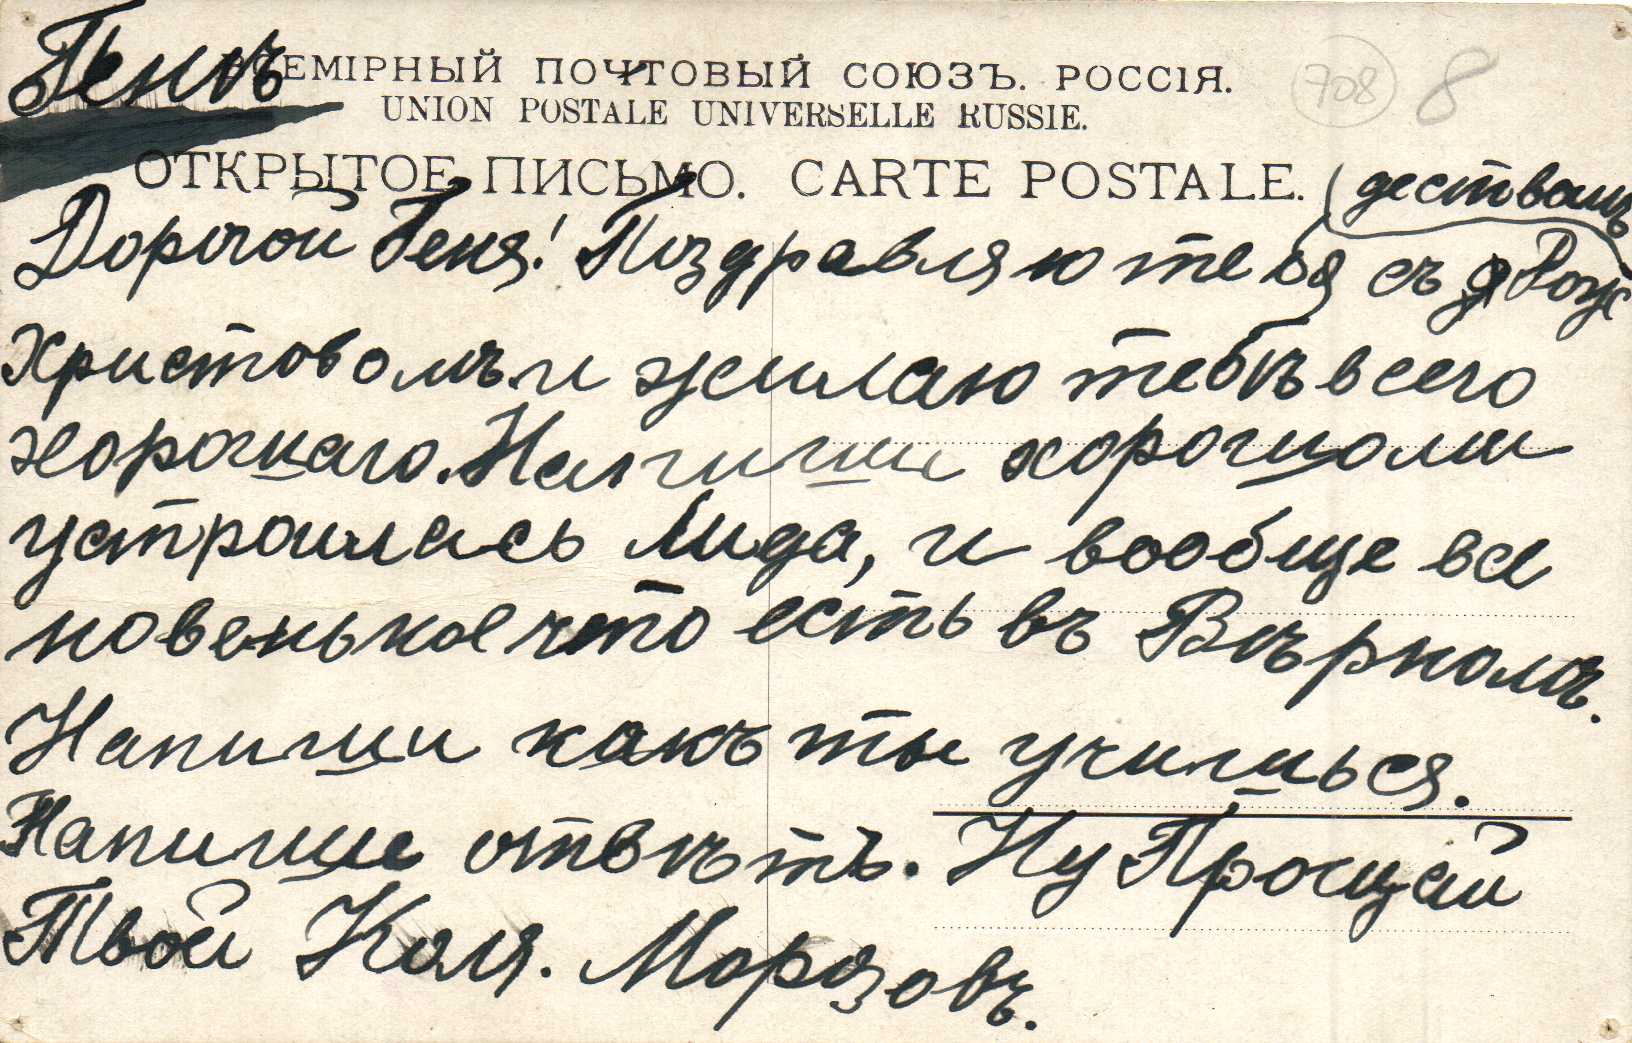 Генѣ
ВСЕМІРНЫЙ ПОЧТОВЫЙ СОЮЗЪ. РОССІЯ.
UNION POSTALE UNIVERSELLE RUSSIE.
ОТКРЫТОЕ ПИСЬМО. CARTE POSTALE.
708 8
дествомъ
Дорогой Геня! Поздравляю тебя съ Рож
Христовомъ и жилаю тебѣ всего
хорошаго. Напиши хорошоли
устроилась Лида, и вообще все
новенькое что есть въ Вѣрномъ.
Напиши какъ ты учишься.
Напиши отвѣтъ. Ну Прощай
Твой Коля. Морозовъ.